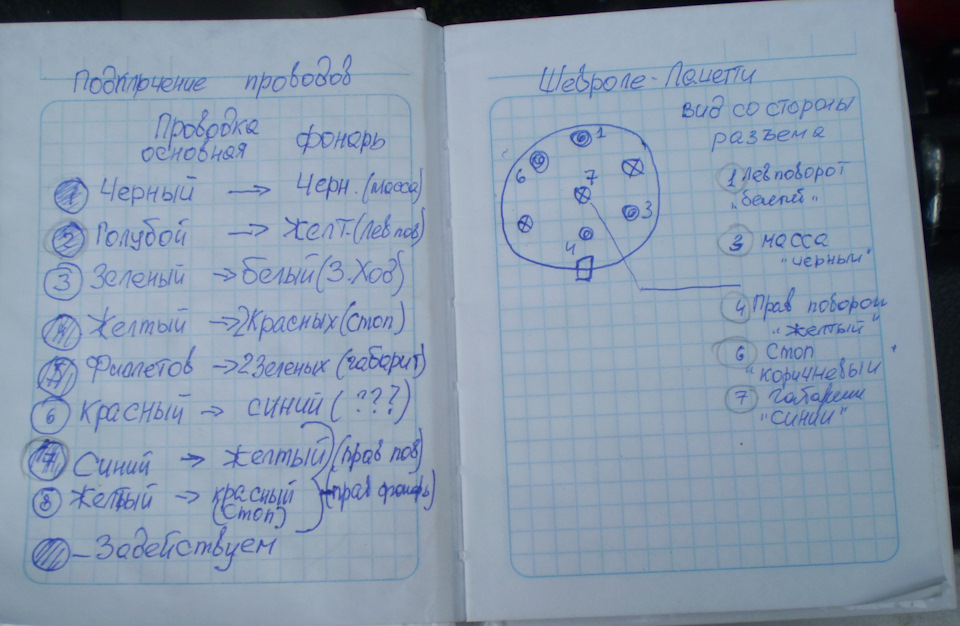 Подключение проводов
Проводка основная фонарь
1 Черный → Черн. (масса)
2 Голубой → Желт. (лев пов)
3 Зеленый → Белый (З.Ход)
4 Желтый → 2 Красных (стоп)
5 Фиолетов → 2 Зеленых (габарит)
6 Красный → синий (???)
7 Синий → Желтый (прав пов)
8 Желтый → красный (стоп) (прав фонарь)
- Задействуем
Шевроле-Лачетти
вид со стороны
разъема
1
6
7
3
4
1 Лев поворот
"белый"
3 масса
"черный"
4 Прав поворот
"желтый"
6 Стоп
"коричневый"
7 габариты
"синий"